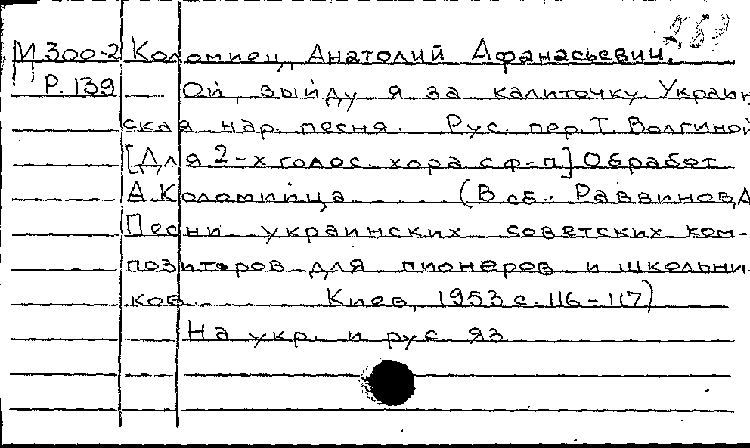 М 300-2 Коломиец, Анатолий Афанасьевич.
Р. 139 Ой, выйду я за калиточку. Украин
ская нар. песня. Рус. пер. Т. Волгиной
[Для 2-х голос. хора с ф-п] Обработ.
А. Коломийца (В сб.: Раввинов, А
Песни украинских советских ком-
позиторов для пионеров и школьни
ков. Киев, 1953 с. 116-117)
На укр. и рус яз